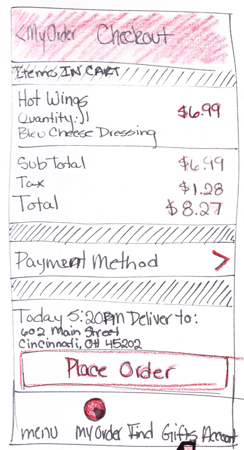 <My Order Checkout
Items IN CART
Hot Wings
$6.99
Quantity: 1
Bleu Cheese Dressing
Sub Total $6.99
Tax $1.28
Total $8.27
Payment Method >
Today 5:20PM Deliver to:
602 Main Street
Cincinnati, OH 45202
Place Order
menu My Order Find Gifts Account